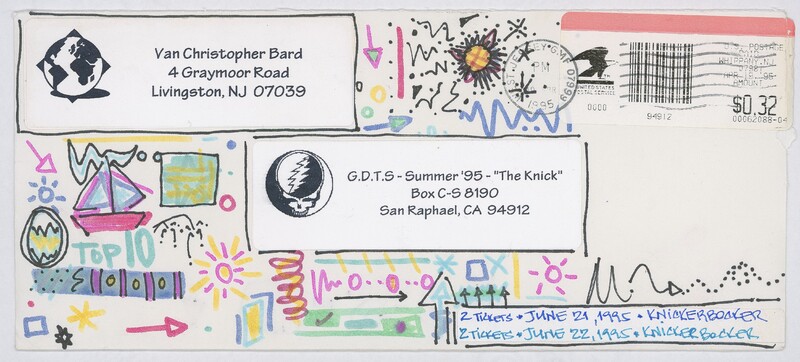 Van Christopher Bard
4 Graymoor Road
Livingston, NJ 07039
NEW JERSEY GMF 079
PM
1995
UNITED STATES
POSTAL SERVICE
0000
94912
U.S. POSTAGE
WHIPPANY, NJ
APR 18, 95
AMOUNT
$0.32
00062088-04
G.D.T.S - Summer '95 - "The Knick"
Box C-S 8190
San Raphael, CA 94912
TOP 10
2 TICKETS • JUNE 21, 1995 • KNICKERBOCKER
2 TICKETS • JUNE 22, 1995 • KNICKERBOCKER